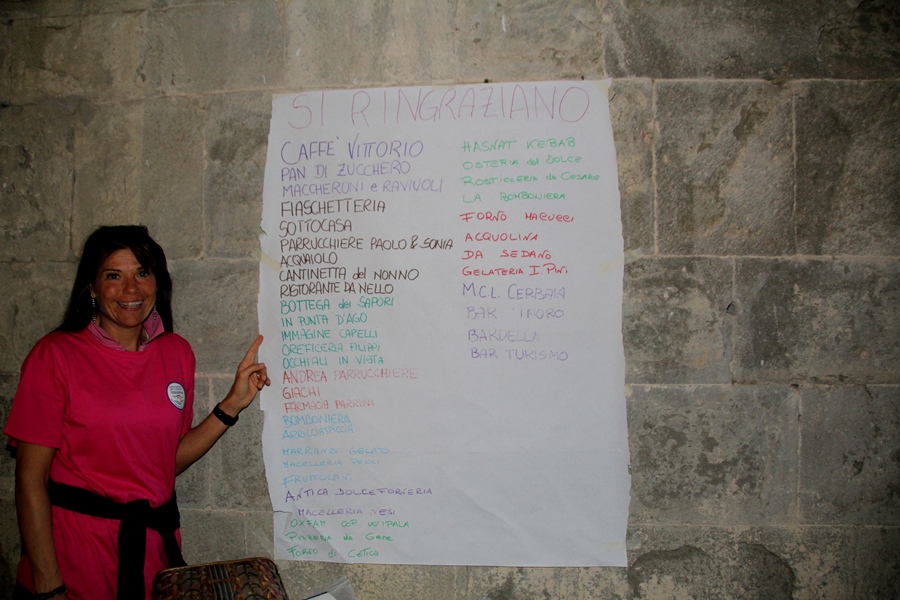 SI RINGRAZIANO
CAFFE' VITTORIO
PAN DI ZUCCHERO
MACCHERONI e RAVIVOLI
FIASCHETTERIA
SOTTOCASA
PARRUCCHIERE PAOLO & SONIA
ACQUAIOLO
CANTINETTA del NONNO
RISTORANTE DA NELLO
BOTTEGA dei SAPORI
IN PUNTA D'AGO
IMMAGINE CAPELLI
OREFICERIA FILIPPI
OCCHIALI IN VISTA
ANDREA PARRUCCHIERE
GIACHI
FARMACIA PARRINI
BOMBONIERA
MARRANO GELATO
MACELLERIA
ANTICA DOLCEFORNERIA
MACELLERIA NESI
OXFAM COOP WIPALA
PIZZERIA da GENE
FORNO di CETICA
HASNAT KEBAB
OSTERIA del DOLCE
ROSTICCERIA da CESARE
LA BOMBONIERA
FORNO MACUCCI
ACQUOLINA
DA SEDANO
GELATERIA I Pini
M.C.L. CERBAIA
BAR
BARDELLA
BAR TURISMO